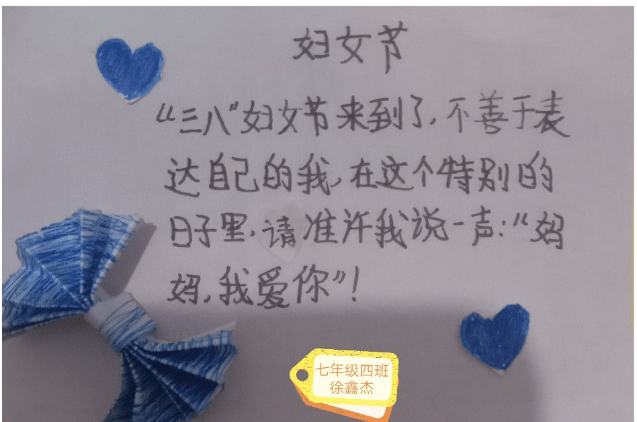 妇女节
“三八”妇女节来到了，不善于表
达自己的我，在这个特别的
日子里，请准许我说一声：“妈
妈，我爱你”！
七年级四班
徐鑫杰